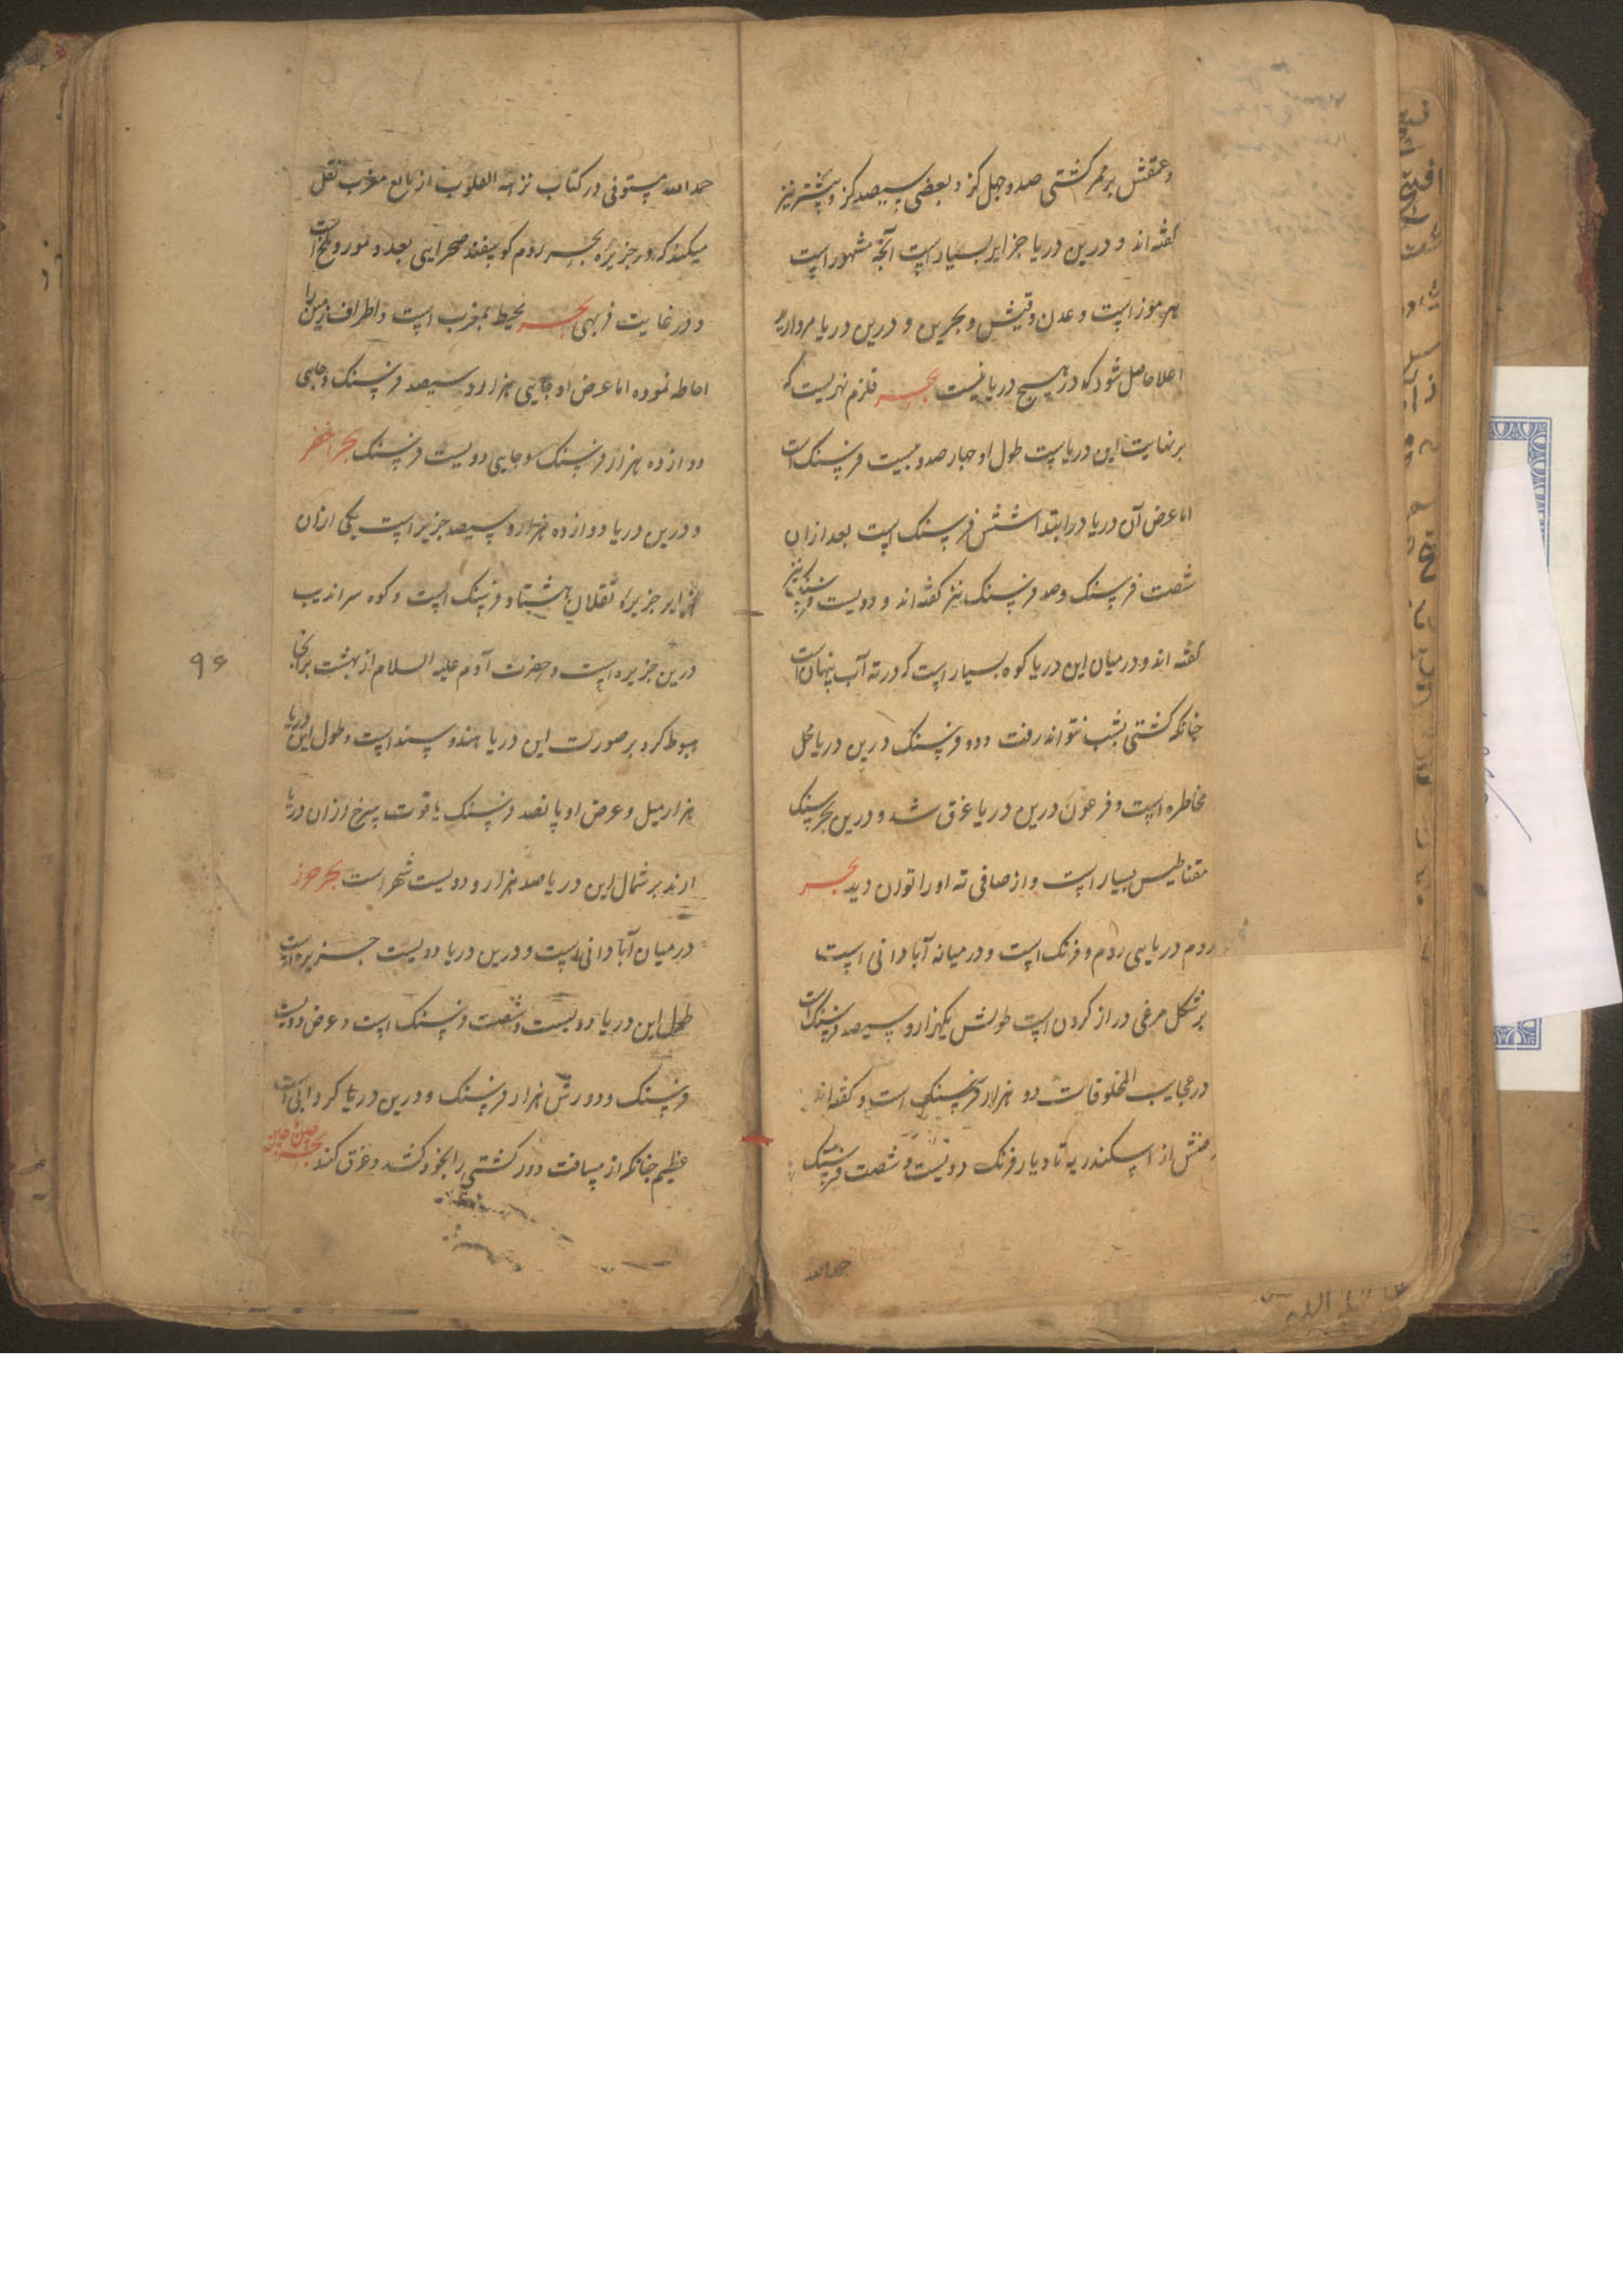 وعمقش بر ممر کشتی صد و چهل کز و بعضی سیصد کز و پیشتر نیز
کفته اند و درین دریا جزایر بسیار است آنچه مشهور است
هرموز است و عدن و قیش و بحرین و درین دریا مروارید
اعلا حاصل شود که در هیچ دریا نیست بحر قلزم نهریست که
بر نهایت این دریاست طول او چهار صد و بیست فرسنک است
اما عرض آن دریا در ابتدا شش فرسنک است بعد ازان
شصت فرسنک و صد فرسنک نیز کفته اند و دویست فرسنک نیز
کفته اند و درمیان این دریا کوه بسیار است که در ته آب پنهان است
چنانکه کشتی بشب نتواند رفت و ده فرسنک درین دریا محل
مخاطره است و فرعون درین دریا غرق شد و درین بحر سنک
مقناطیس بسیار است و از صافی ته او را توان دید بحر
روم دریایی روم و فرنک است و درمیانه آبادانی است
بر شکل مرغی دراز کردن است طولش یکهزار و سیصد فرسنک است
در عجایب المخلوقات دو هزار فرسنک است و کفته اند
از اسکندریه تا دیار فرنک دویست و شصت فرسنک
حمدالله
حمدالله مستوفی در کتاب نزهه القلوب از مغرب نقل
میکند که در جزیزه بحر روم کوسفند صحرایی بعدد مور و ملخ است
و در غایت فربهی بحر محیط بمغرب است و اطراف زمین را
احاطه نموده اما عرض او جایی هزار و سیصد فرسنک و جایی
دوازده هزار فرسنک و جایی دویست فرسنک بحر اخضر
و درین دریا دوازده هزار و سیصد جزیر است یکی ازان
جزایر جزیره هشتاد فرسنک است و کوه سراندیب
درین جزیره است و حضرت آدم علیه السلام از بهشت برانجا
هبوط کرد بر صورت این دریا هند و سند است و طول این دریا
هزار میل و عرض او پانصد فرسنک یاقوت سرخ ازان دریا
ارند بر شمال این دریا صد هزار و دویست شهر است بحر خزر
درمیان آبادانی است و درین دریا دویست جزیره است
طول این دریا دویست و شصت فرسنک است و عرض دویست
فرسنک و دورش هزار فرسنک و درین دریا کردابی است
عظیم چنانکه از مسافت دور کشتی را بخود کشد و غرق کند بحر چین ماچین
۹۶